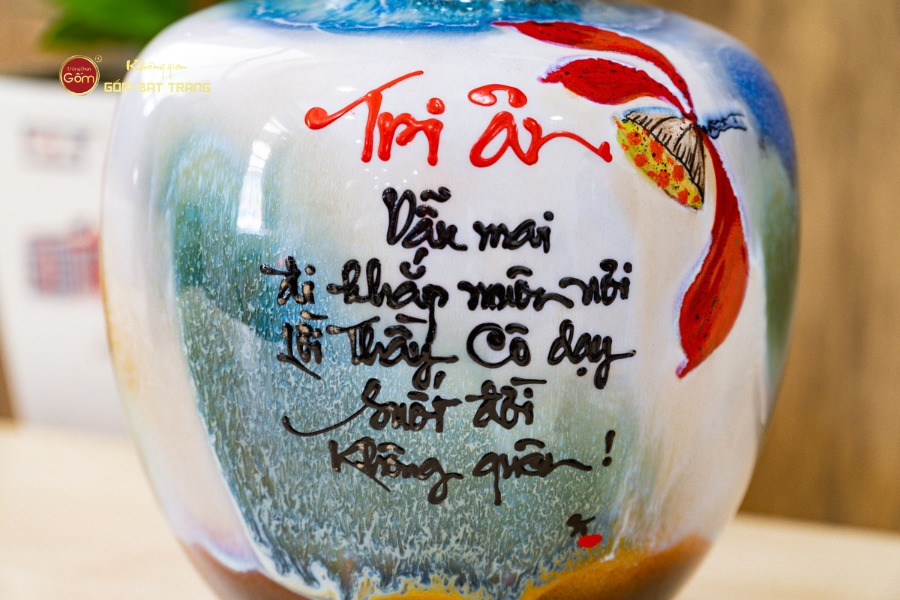 Trống Đồng
Gốm
Không gian
GỐM BÁT TRÀNG
Tri ân
Dẫu mai
đi khắp muôn nơi
Lời Thầy Cô dạy
suốt đời
không quên!